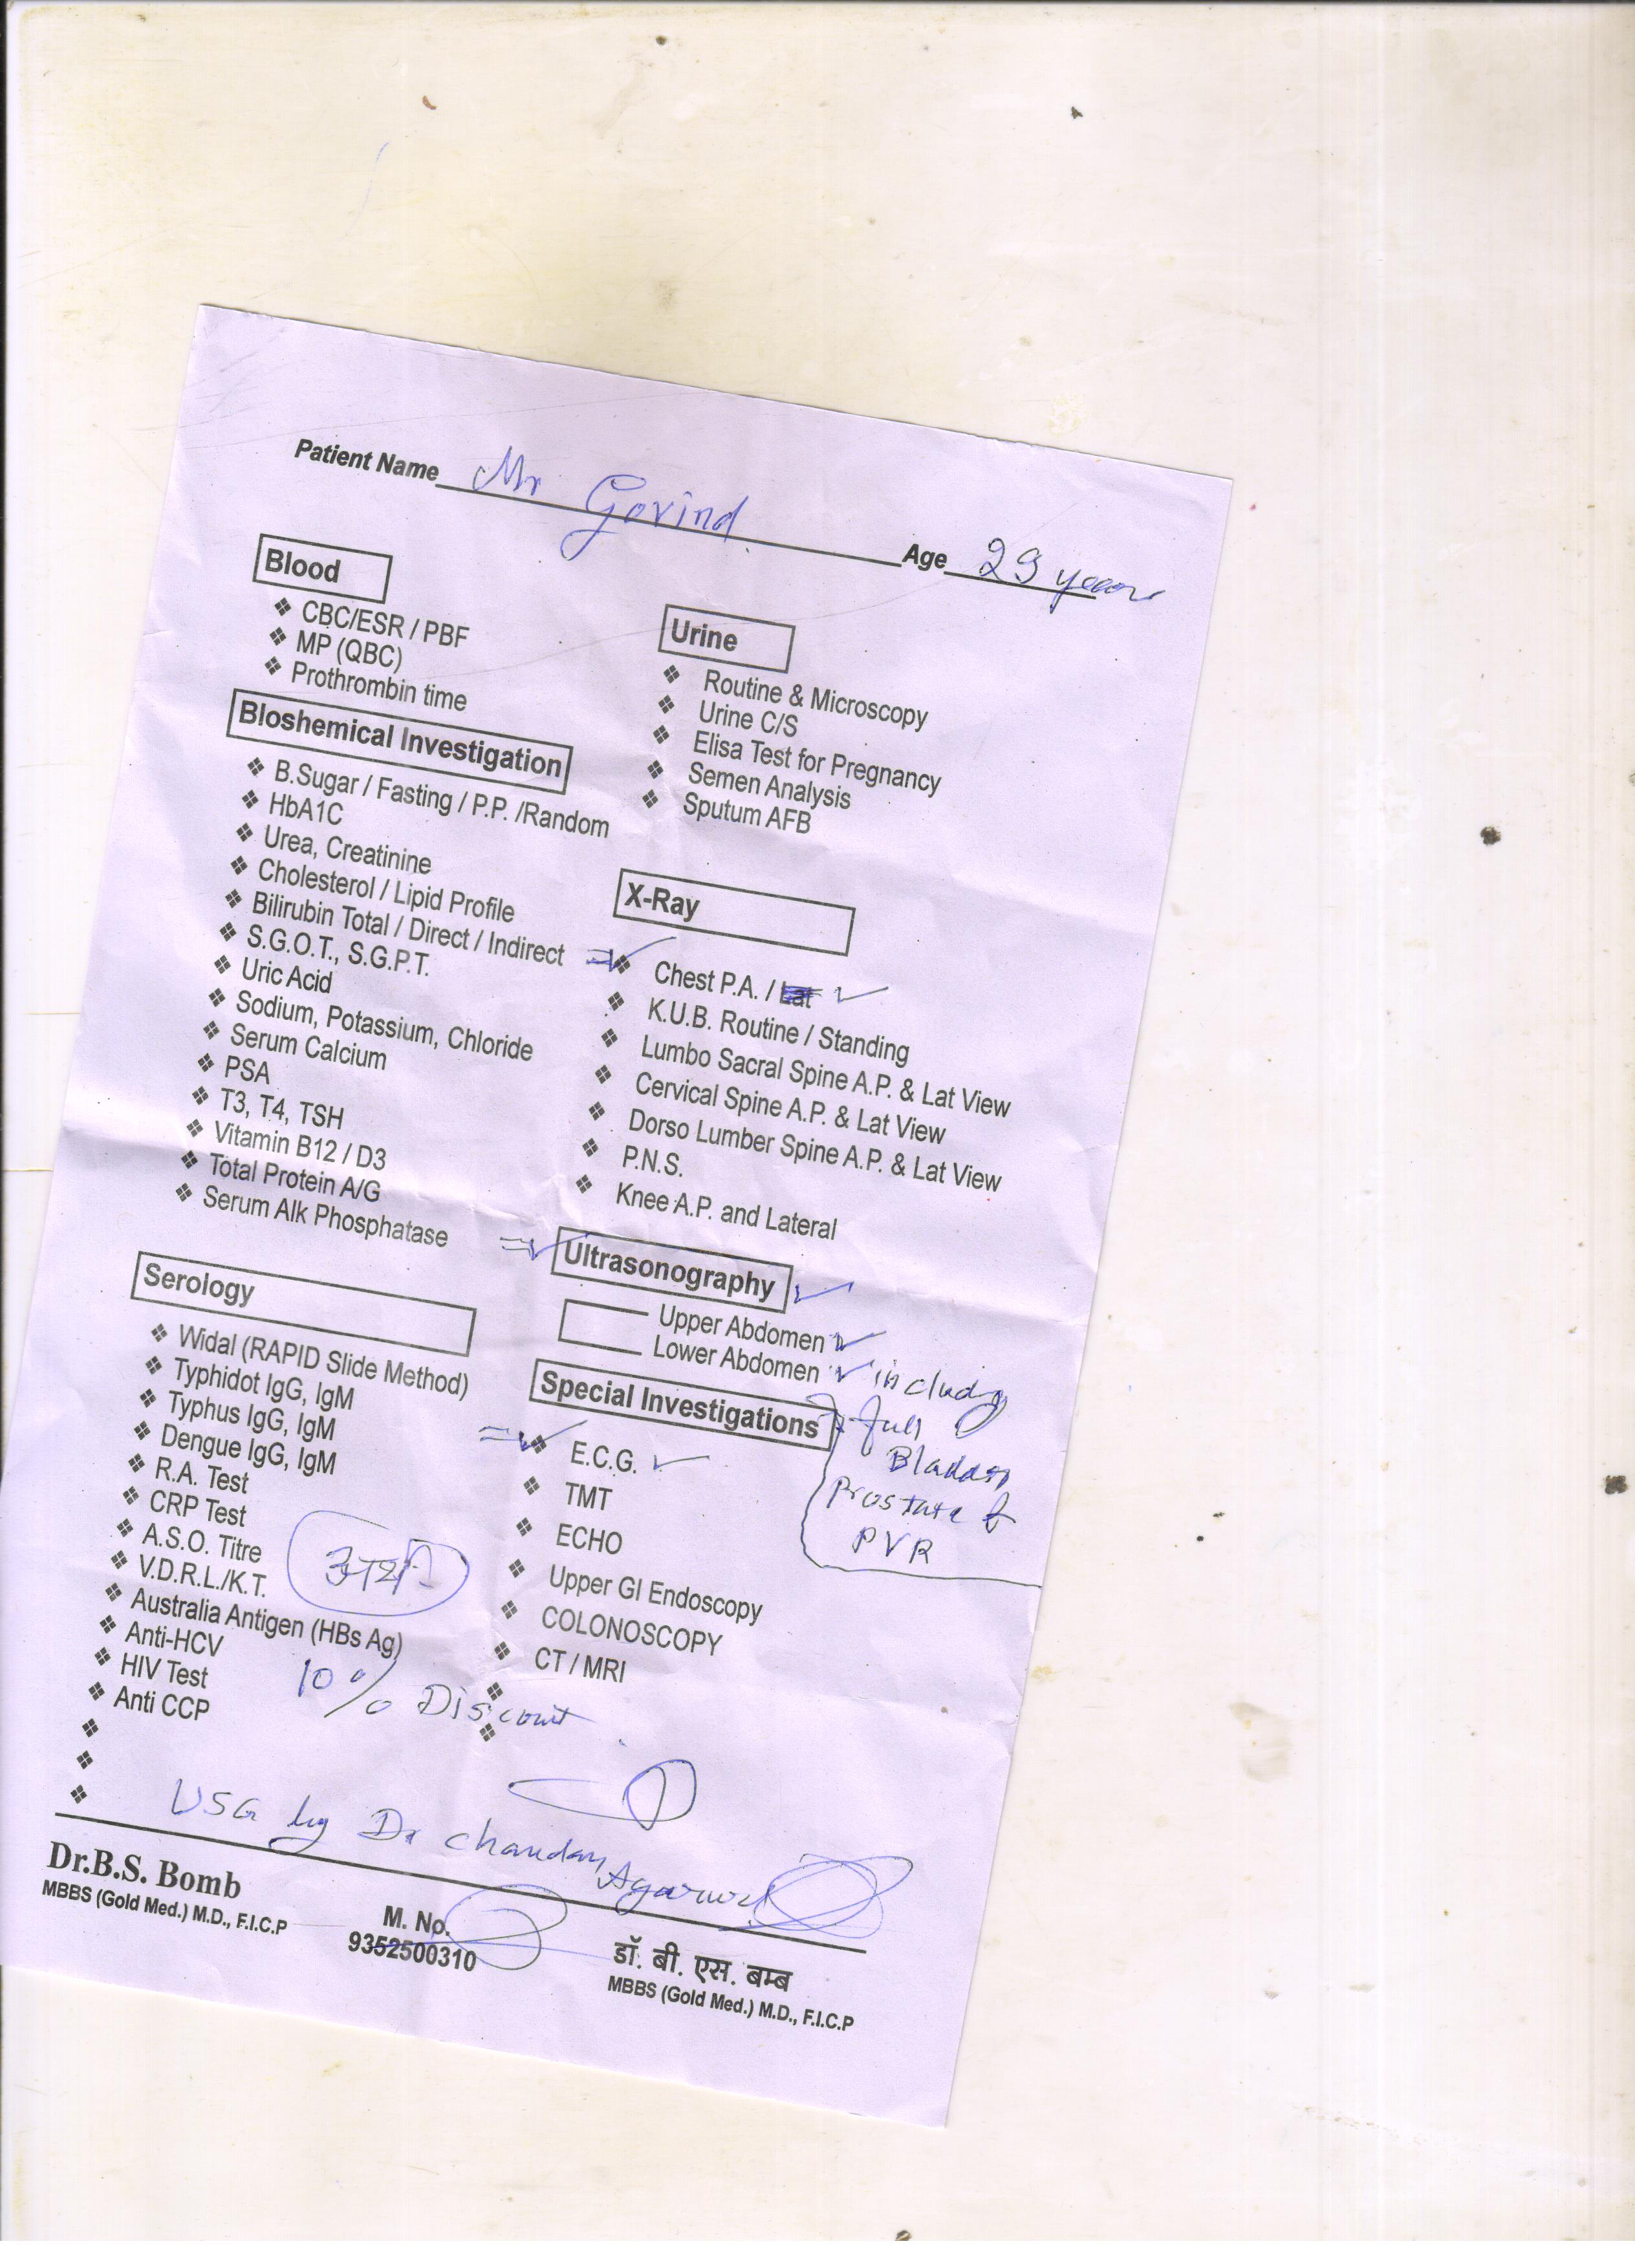 Patient Name Mr Govind Age 29 years
Blood
❖ CBC/ESR / PBF
❖ MP (QBC)
❖ Prothrombin time
Bloshemical Investigation
❖ B.Sugar / Fasting / P.P. /Random
❖ HbA1C
❖ Urea, Creatinine
❖ Cholesterol / Lipid Profile
❖ Bilirubin Total / Direct / Indirect
❖ S.G.O.T., S.G.P.T.
❖ Uric Acid
❖ Sodium, Potassium, Chloride
❖ Serum Calcium
❖ PSA
❖ T3, T4, TSH
❖ Vitamin B12 / D3
❖ Total Protein A/G
❖ Serum Alk Phosphatase
Serology
❖ Widal (RAPID Slide Method)
❖ Typhidot IgG, IgM
❖ Typhus IgG, IgM
❖ Dengue IgG, IgM
❖ R.A. Test
❖ CRP Test
❖ A.S.O. Titre
❖ V.D.R.L./K.T.
❖ Australia Antigen (HBs Ag)
❖ Anti-HCV
❖ HIV Test
❖ Anti CCP
Urine
❖ Routine & Microscopy
❖ Urine C/S
❖ Elisa Test for Pregnancy
❖ Semen Analysis
❖ Sputum AFB
X-Ray
❖ Chest P.A. / Lat ✓
❖ K.U.B. Routine / Standing
❖ Lumbo Sacral Spine A.P. & Lat View
❖ Cervical Spine A.P. & Lat View
❖ Dorso Lumber Spine A.P. & Lat View
❖ P.N.S.
❖ Knee A.P. and Lateral
Ultrasonography ✓
Upper Abdomen ✓
Lower Abdomen ✓ includg
full
Bladder
Prostate &
PVR
Special Investigations
❖ E.C.G. ✓
❖ TMT
❖ ECHO
❖ Upper GI Endoscopy
❖ COLONOSCOPY
❖ CT / MRI
10% Discount
USG by Dr Chandan Agarwal
Dr.B.S. Bomb
MBBS (Gold Med.) M.D., F.I.C.P
M. No.
9352500310
डॉ. बी. एस. बम्ब
MBBS (Gold Med.) M.D., F.I.C.P